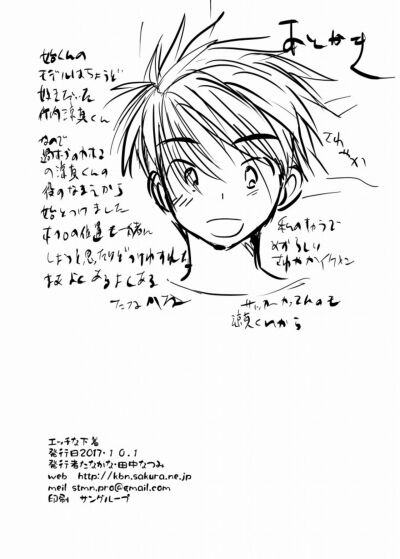 あとがき
始くんの
モデルはちょうど
始まった
竹内涼真くん
なので
の涼真くんの
役のなまえから
始とつけました
ホクロの位置も一緒に
しようと思ったけどつけわすれた
よくあるよくある
さわやか
私のキャラで
めずらしい
さわやかイケメン
サッカーやってんのも
涼真くんから
エッチな下着
発行日2017・10.1
発行者たなかな・田中なつみ
web http://kbn.sakura.ne.jp
meil stmn.pro@gmail.com
印刷 サングループ